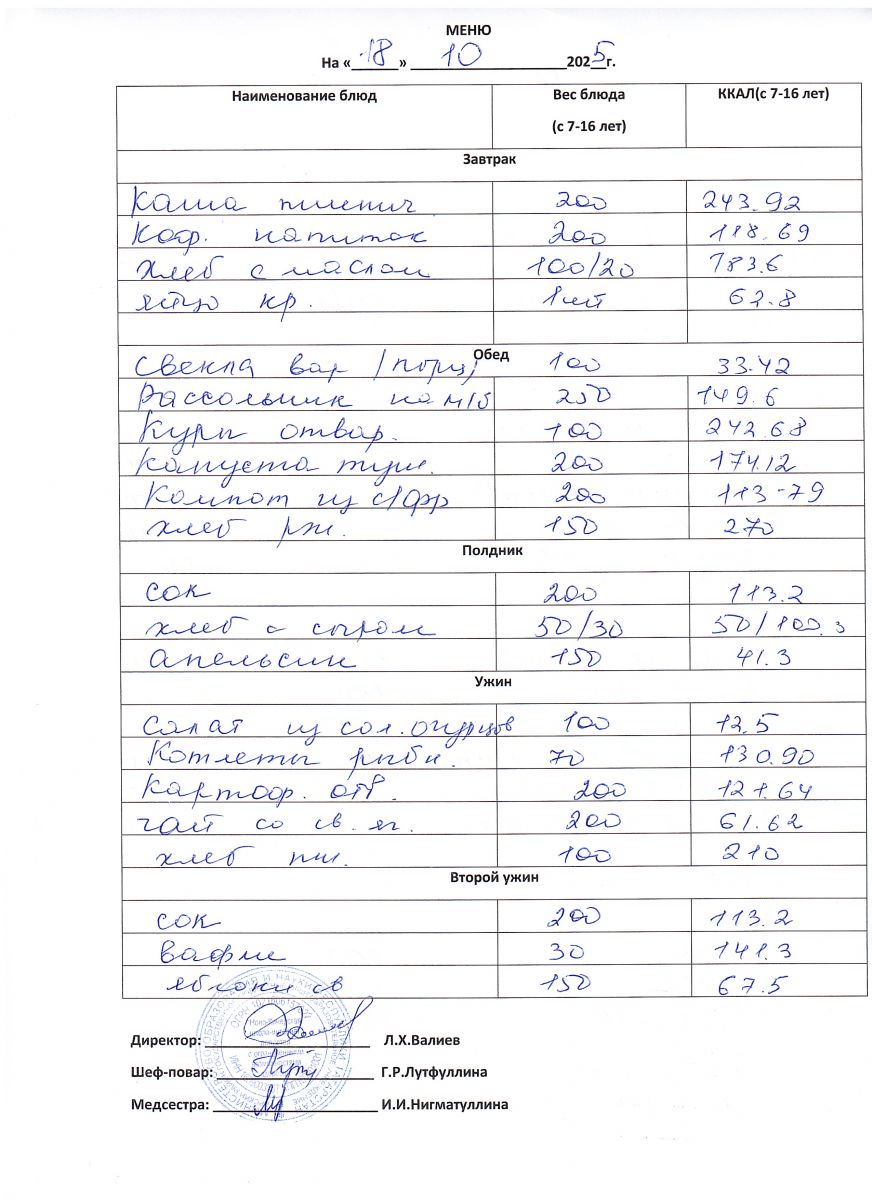 МЕНЮ
На « 18 » 10 2025г.
Наименование блюд Вес блюда (с 7-16 лет) ККАЛ(с 7-16 лет)
Завтрак
Каша пшенич. 200 243.92
Коф. напиток 200 118.69
Хлеб с маслом 100/20 783.6
яйцо кр. 1шт 62.8
Обед
Свекла вар /порц/ 100 33.42
Рассольник на м/б 250 149.6
Куры отвар. 100 242.68
Капуста туш. 200 174.12
Компот из с/фр 200 113-79
хлеб рж. 150 270
Полдник
сок 200 113.2
хлеб с сыром 50/30 50/100.3
Апельсин 150 41.3
Ужин
Салат из сол. огурцов 100 12.5
Котлеты рыбн. 70 130.90
Картоф. отв. 200 121.64
чай со св. яг. 200 61.62
хлеб пш. 100 210
Второй ужин
сок 200 113.2
вафли 30 141.3
яблоки св 150 67.5
Директор: Л.Х.Валиев
Шеф-повар: Г.Р.Лутфуллина
Медсестра: И.И.Нигматуллина